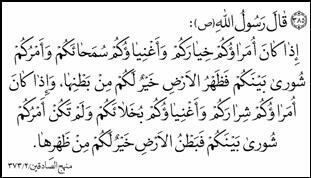 ٣٨٥ قَالَ رَسُولُ اللهِ (ص):
إِذَا كَانَ أُمَرَاؤُكُمْ خِيَارَكُمْ وَأَغْنِيَاؤُكُمْ سُمَحَائَكُمْ وَأَمْرُكُمْ
شُورىٰ بَيْنَكُمْ فَظَهْرُ الْاَرْضِ خَيْرٌ لَكُمْ مِنْ بَطْنِهَا. وَإِذَا كَانَ
أُمَرَاؤُكُمْ شِرَارَكُمْ وَأَغْنِيَاؤُكُمْ بُخَلَائَكُمْ وَلَمْ تَكُنْ أَمْرُكُمْ
شُورىٰ بَيْنَكُمْ فَبَطْنُ الْاَرْضِ خَيْرٌ لَكُمْ مِنْ ظَهْرِهَا.
منهج الصادقين ٣٧٣/٢